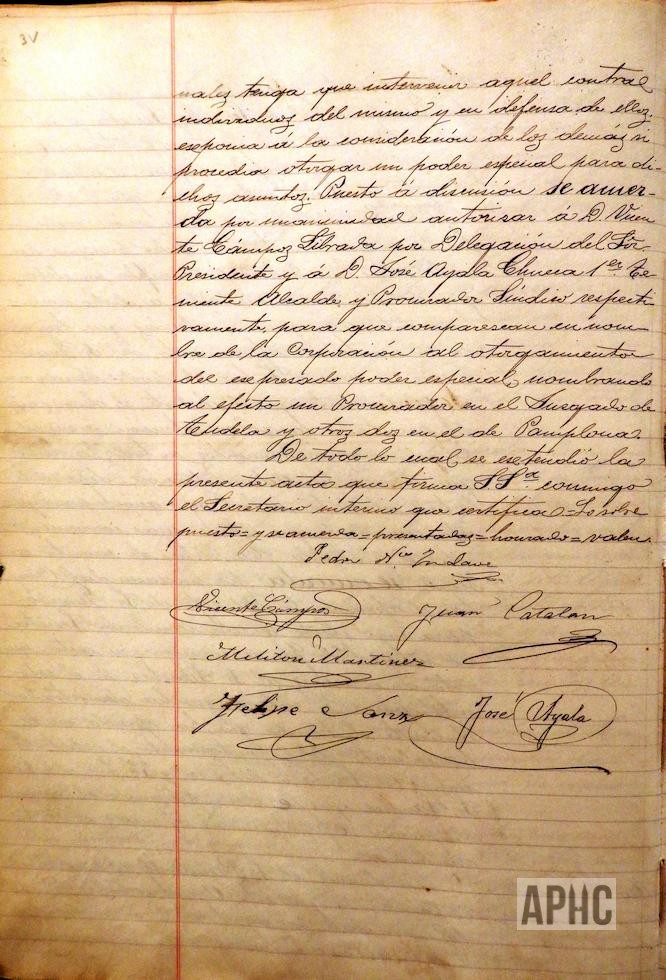 3V
nales tenga que intervenir aquel contra
individuos del mismo y en defensa de ellos.
esponia á la consideración de los demas si
procedia otorgar un poder especial para di-
chos asuntos. Puesto á discusion se acuer-
da por unanimidad autorizar á D. Vicen
te Cámpos Librada por Delegación del Sr.
Presidente y á D. José Ayala Chueca 1er Te-
niente Alcalde y Procurador Síndico respecti
vamente, para que comparescan en nom-
bre de la Corporación al otorgamiento
del espresado poder especial, nombrando
al efecto un Procurador en el Jusgado de
Tudela y otros dos en el de Pamplona.
De todo lo cual se estendió la
presente acta que firma SSª conmigo
el Secretario interno que certifica = Lo sobre
puesto = y se acuerda = presentadas = honrado = valen.
Pedro
Vicente Cámpos
Juan Catalan
Meliton Martinez
Felipe Sanz
José Ayala
APHC